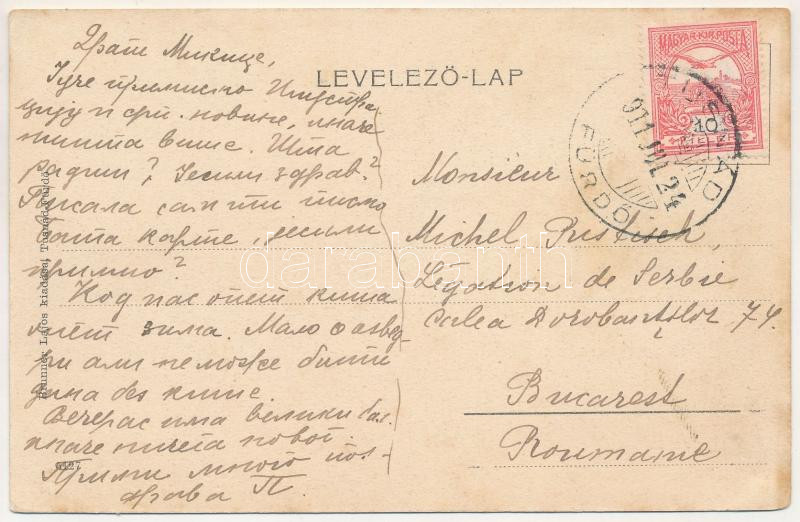 Драги Микице,
LEVELEZŐ-LAP
MAGYAR·KIR·POSTA
10
TUSNÁD
911 JUL 24
FÜRDŐ
Јуче примисмо
цију и српс. новине, иначе
ништа више. Шта
радиш? Јеси ли здрав?
Писала сам ти писмо
и карте, јеси ли
примио?
Код нас опет киша
опет зима. Мало се разве-
дри али не може бити
дана без кише.
Вечерас има велики бал.
иначе ништа новог.
Прими много поз-
драва П
Monsieur
Michel
Légation de Serbie
Calea Dorobantilor 74.
Bucarest
Roumanie
Brunner Lajos kiadása, Tusnád-Fürdő
darabanth